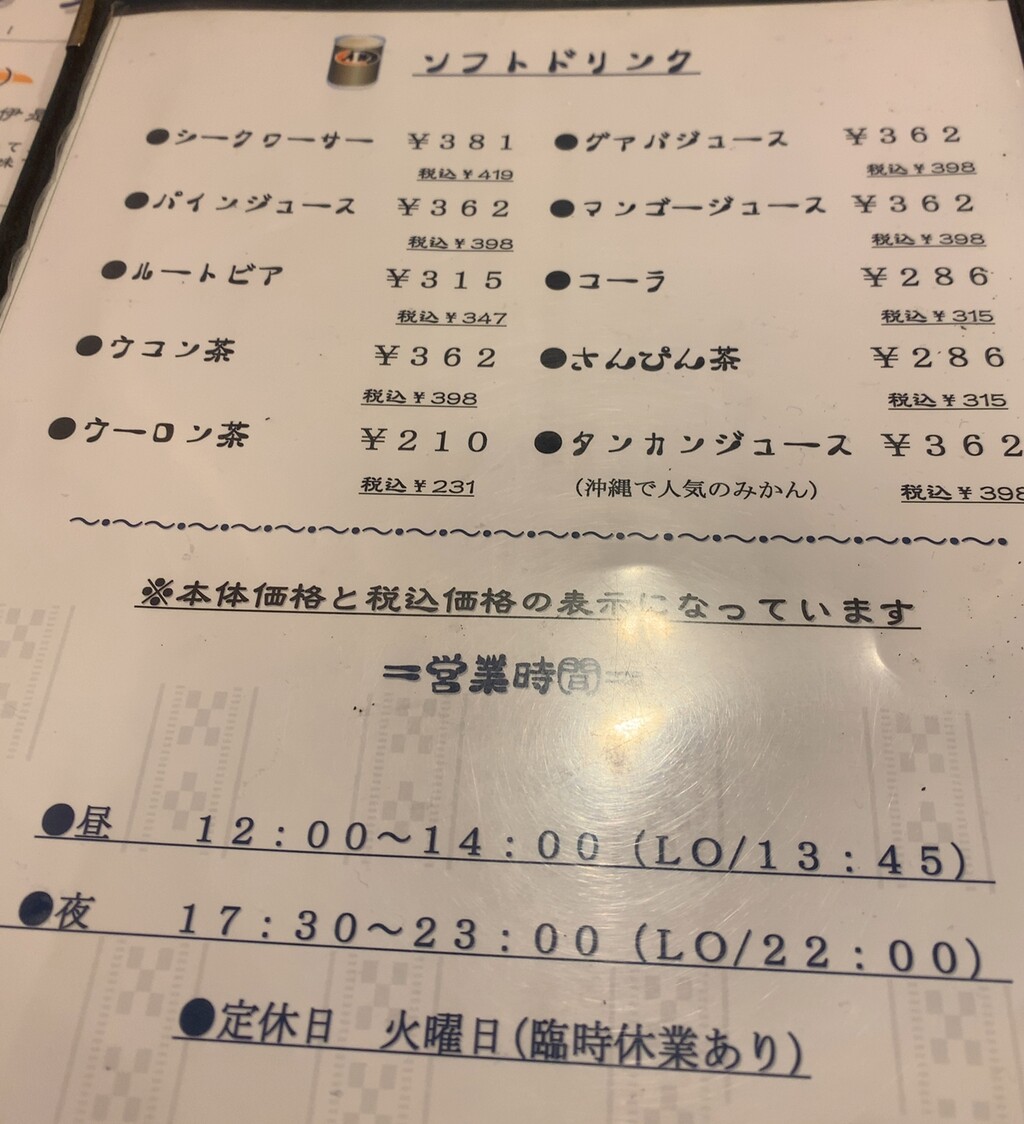 A&W
ソフトドリンク
●シークワーサー ￥３８１
税込￥419
●パインジュース ￥３６２
税込￥398
●ルートビア ￥３１５
税込￥347
●ウコン茶 ￥３６２
税込￥398
●ウーロン茶 ￥２１０
税込￥231
●グァバジュース ￥３６２
税込￥398
●マンゴージュース ￥３６２
税込￥398
●コーラ ￥２８６
税込￥315
●さんぴん茶 ￥２８６
税込￥315
●タンカンジュース ￥３６２
（沖縄で人気のみかん） 税込￥398
※本体価格と税込価格の表示になっています
＝営業時間＝
●昼 １２：００～１４：００（ＬＯ/１３：４５）
●夜 １７：３０～２３：００（ＬＯ/２２：００）
●定休日 火曜日(臨時休業あり)